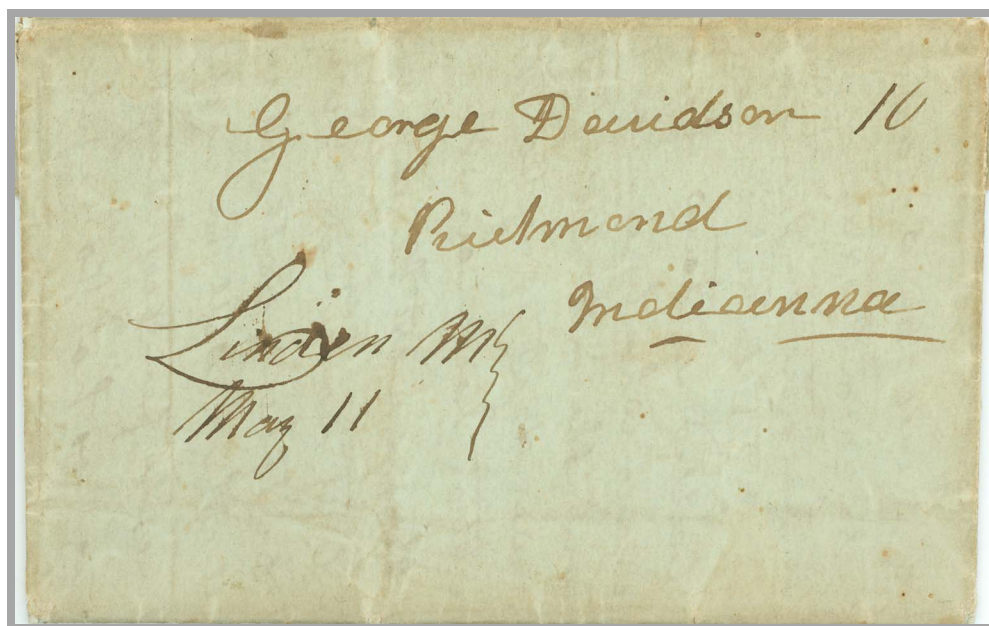 George Davidson 10
Richmond
Indianna
Linden M
May 11